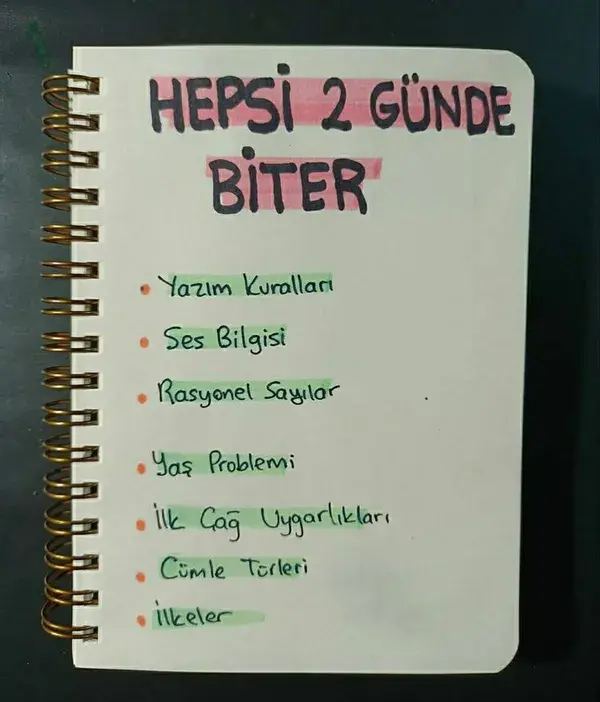 HEPSİ 2 GÜNDE
BİTER
• Yazım Kuralları
• Ses Bilgisi
• Rasyonel Sayılar
• Yaş Problemi
• İlk Çağ Uygarlıkları
• Cümle Türleri
• İlkeler